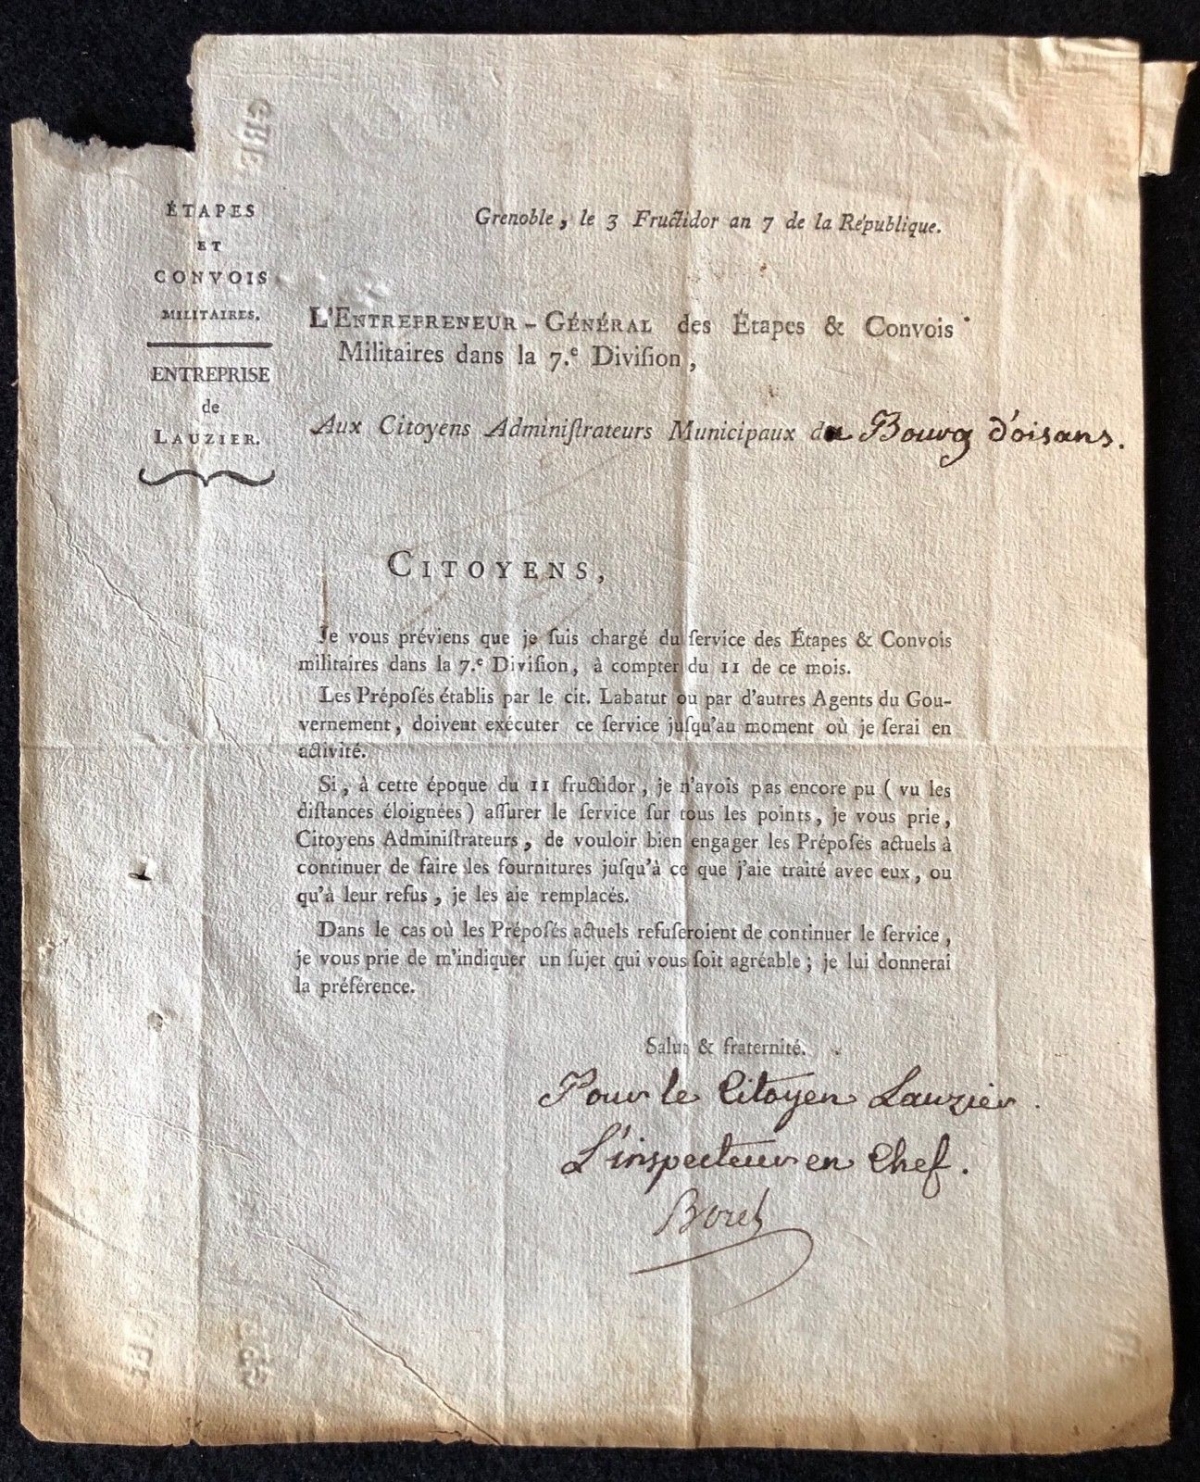 ÉTAPES
ET
CONVOIS
MILITAIRES.
ENTREPRISE
de
LAUZIER.
Grenoble, le 3 Fructidor an 7 de la République.
L'ENTREPRENEUR-GÉNÉRAL des Étapes & Convois
Militaires dans la 7.e Diviſion,
Aux Citoyens Adminiſtrateurs Municipaux du Bourg d'oisans.
CITOYENS,
Je vous préviens que je ſuis chargé du ſervice des Étapes & Convois
militaires dans la 7.e Diviſion, à compter du 11 de ce mois.
Les Prépoſés établis par le cit. Labatut ou par d'autres Agents du Gou-
vernement, doivent exécuter ce ſervice juſqu'au moment où je ſerai en
activité.
Si, à cette époque du 11 fructidor, je n'avois pas encore pu (vu les
diſtances éloignées) aſſurer le ſervice ſur tous les points, je vous prie,
Citoyens Adminiſtrateurs, de vouloir bien engager les Prépoſés actuels à
continuer de faire les fournitures juſqu'à ce que j'aie traité avec eux, ou
qu'à leur refus, je les aie remplacés.
Dans le cas où les Prépoſés actuels refuſeroient de continuer le ſervice,
je vous prie de m'indiquer un ſujet qui vous ſoit agréable; je lui donnerai
la préférence.
Salut & fraternité.
Pour le Citoyen Lauzier.
L'inspecteur en Chef.
Borel